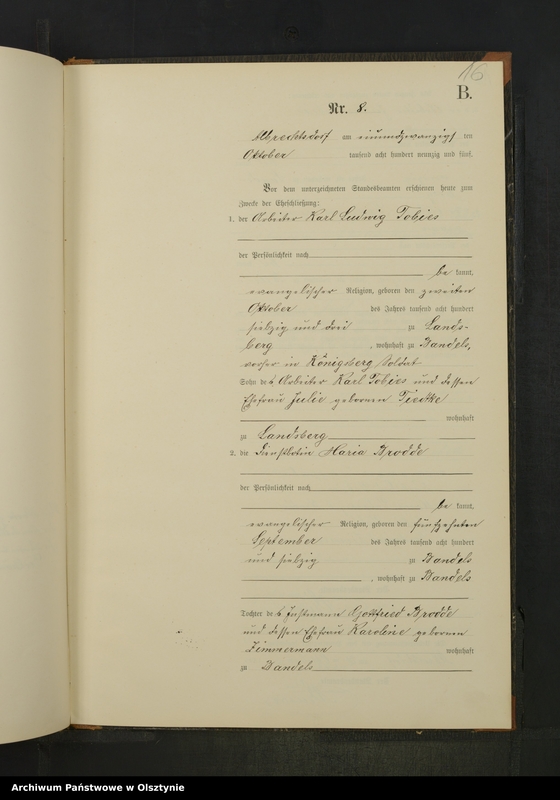 16
B.
Nr. 8.
Albrechtsdorf am einundzwanzigsten
Oktober tausend acht hundert neunzig und fünf.
Vor dem unterzeichneten Standesbeamten erschienen heute zum
Zwecke der Eheschließung:
1. der Arbeiter Karl Ludwig Tobies
der Persönlichkeit nach
be kannt,
evangelischer Religion, geboren den zweiten
Oktober des Jahres tausend acht hundert
siebzig und drei zu Lands-
berg, wohnhaft zu Bandels,
vorher in Königsberg Soldat
Sohn des Arbeiter Karl Tobies und dessen
Ehefrau Julie geborenen Tiedtke
wohnhaft
zu Landsberg
2. die Dienstbotin Maria Brodde
der Persönlichkeit nach
be kannt,
evangelischer Religion, geboren den fünfzehnten
September des Jahres tausend acht hundert
und siebzig zu Bandels
, wohnhaft zu Bandels
Tochter des Instmann Gottfried Brodde
und dessen Ehefrau Karoline geborenen
Zimmermann wohnhaft
zu Bandels
Archiwum Państwowe w Olsztynie